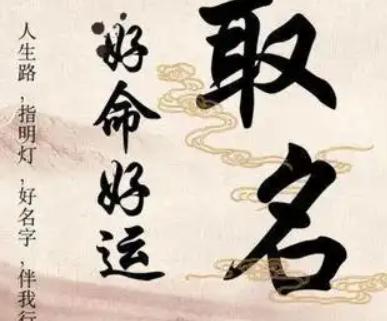 取名
好命好运
人生路,指明灯,好名字,伴我行